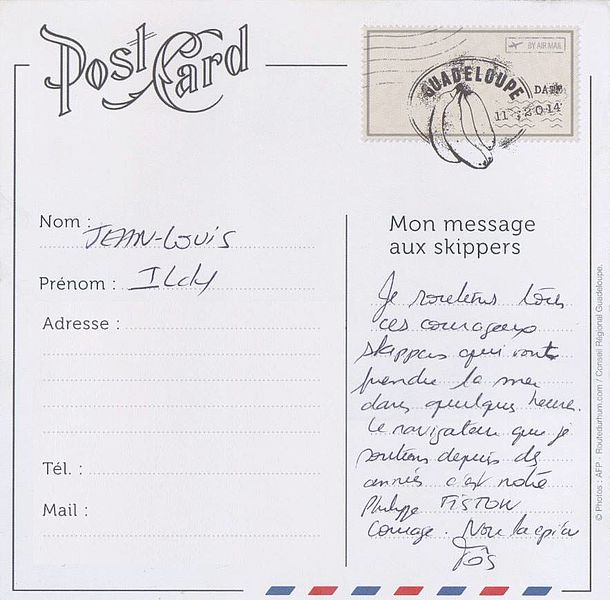 Post Card
BY AIR MAIL
GUADELOUPE
DATE
11 2014
Nom : JEAN-LOUIS
Prénom : ILdy
Adresse :
Tél. :
Mail :
Mon message
aux skippers
Je soutiens tous
ces courageux
skippers qui vont
prendre la mer
dans quelques heures.
Le navigateur que je
soutiens depuis des
années c'est notre
Philippe FISTON
Courage. Nou la épi'w
© Photos : AFP - Routedurhum.com / Conseil Régional Guadeloupe.